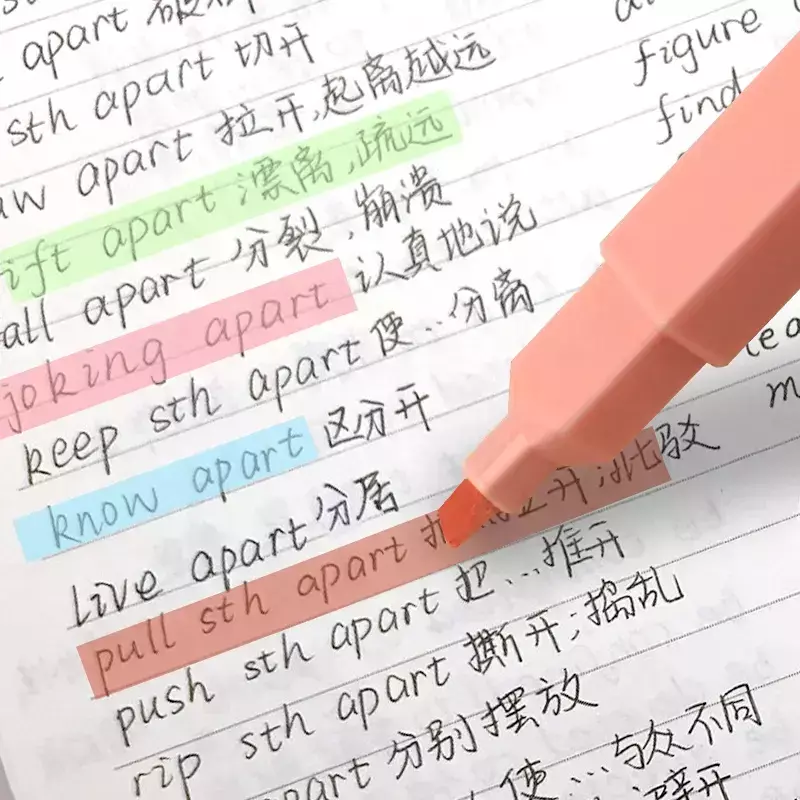 apart
sth apart 切开
apart 拉开,起离越远
apart 漂离,疏远
apart 分裂,崩溃
joking apart 认真地说
keep sth apart 使…分离
know apart 区分开
live apart 分居
pull sth apart 开;批驳
push sth apart 把…推开
rip sth apart 撕开;捣乱
apart 分别摆放
使…与众不同
figure
find